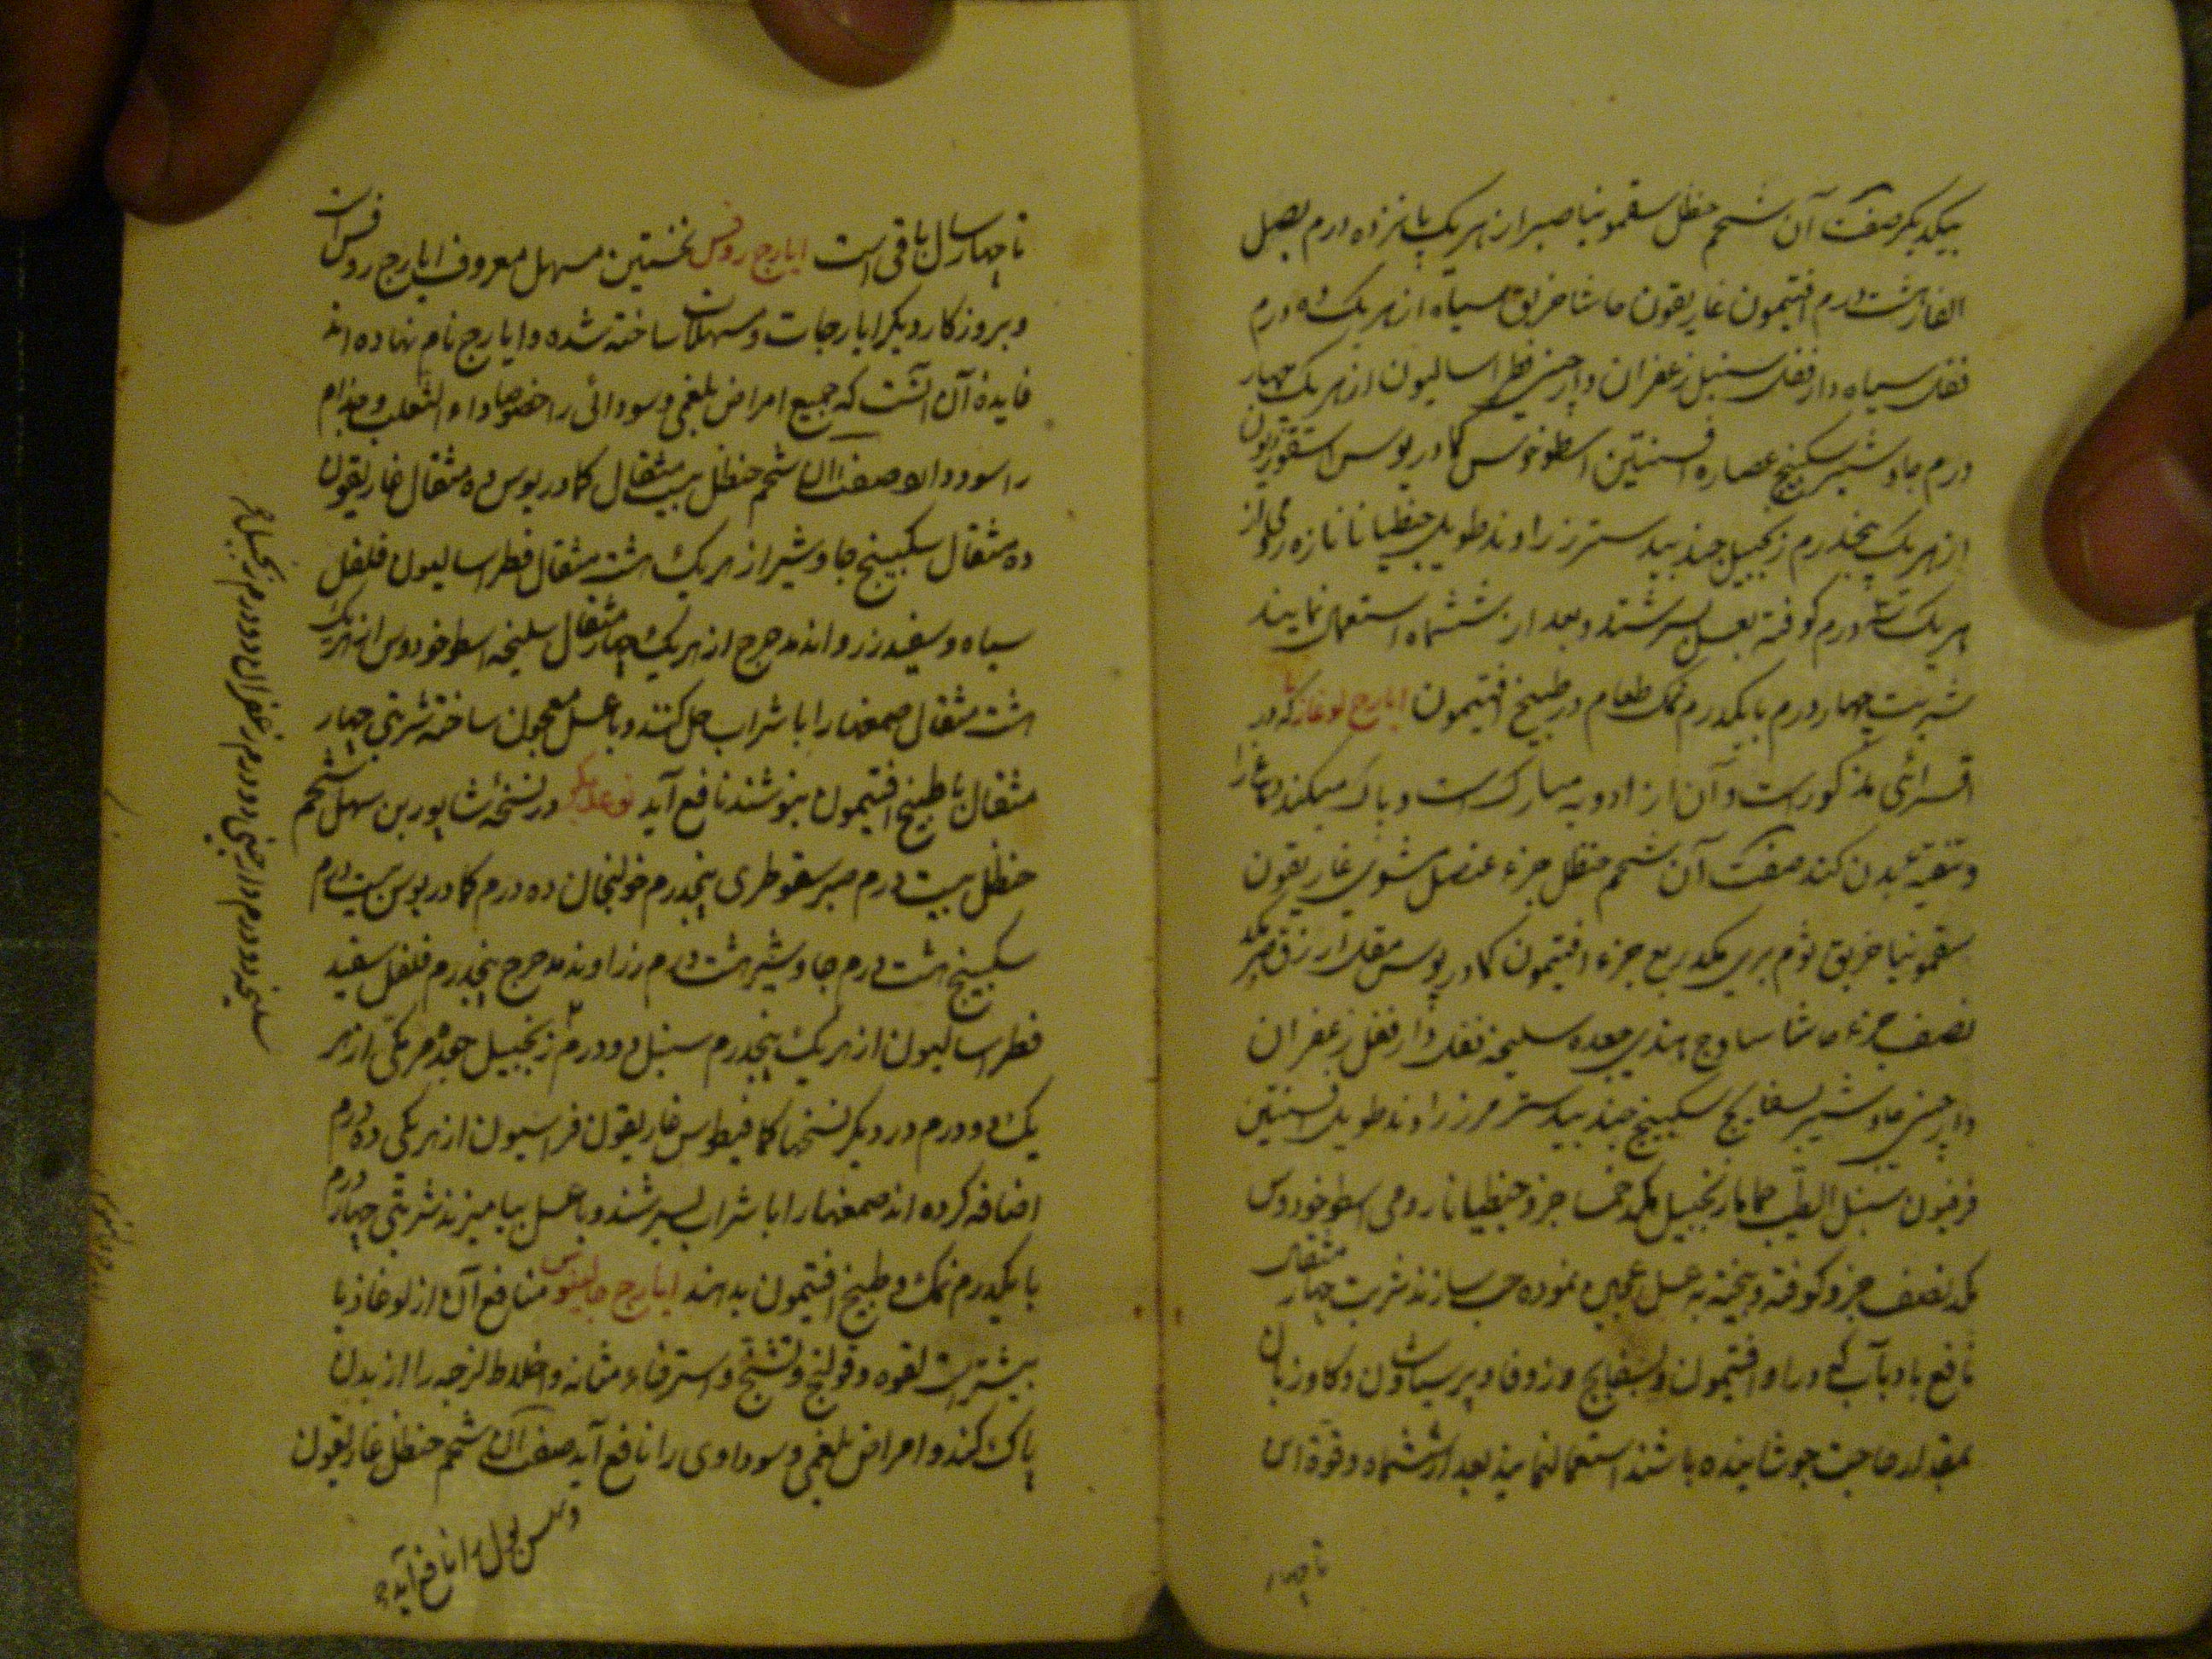 بیکدیکر صفت آن شحم حنظل سقمونیا صبر از هریک پانزده درم بصل
الفار هشت درم افتیمون غاریقون حاشا خربق سیاه از هریک ده درم
فلفل سیاه دارفلفل سنبل زعفران دارچینی فطراسالیون از هریک چهار
درم جاوشیر سکبینج عصاره افسنتین اسطوخودس کمادریوس اسقوردیون
از هریک پنجدرم زنجبیل جندبیدستر زراوند طویل جنطیانا تازه رومی از
هریک درم کوفته بعسل بسرشند و بعد از ششماه استعمال نمایند
شربت چهار درم با یکدرم نمک طعام در طبیخ افتیمون ایارج لوغازیا که در
اقسرائی مذکور است و آن از ادویه مبارک است و پاک میکند دماغ را
و تنقیه بدن کند صفت آن شحم حنظل جزء عنصل مشوی غاریقون
سقمونیا خربق ثوم بری یکد ربع جزء افتیمون کمادریوس مقل ازرق صبر یکد
نصف جزء حاشا ساوج هندی جعده سلیخه فلفل دارفلفل زعفران
دارچینی جاوشیر بسفایج سکبینج جندبیدستر مر زراوند طویل افسنتین
فرفیون سنبل الطیب حماما زنجبیل یکد خمسا جزو جنطیانا رومی اسطوخودوس
یکد نصف جزو کوفته و بیخته به عسل عجین نموده حب سازند شربت چهار مثقال
نافع باد بآب که در او افتیمون و بسفایج و زوفا و پرسیاوشان و کاوزبان
بمقدار حاجت جوشانیده باشند استعمال نمایند بعد از ششماه و قوة آن
تا چهار
تا چهار سال باقی است ایارج روفس نخستین مسهل معروف ایارج روفس است
و بروزکار دیکر ایارجات و مسهلات ساخته شده و ایارج نام نهاده اند
فایدهٔ آن آنست که جمیع امراض بلغمی و سودائی را خصوصا داء الثعلب و جذام
را سود دهد صفت آن شحم حنظل بیست مثقال کمادریوس ده مثقال غاریقون
ده مثقال سکبینج جاوشیر از هریک هشت مثقال فطراسالیون فلفل
سیاه و سفید زراوند مدحرج از هریک چهار مثقال سلیخه اسطوخودوس از هریک
هشت مثقال صمغها را با شراب حل کنند و با عسل معجون ساخته شربتی چهار
مثقال با طبیخ افتیمون بنوشند نافع آید نوعدیکر در نسخهٔ شاپور بن سهل شحم
حنظل بیست درم صبر سقوطری پنجدرم خولنجان ده درم کمادریوس بیست درم
سکبینج هشت درم جاوشیر هشت درم زراوند مدحرج پنجدرم فلفل سفید
فطراسالیون از هریک پنجدرم سنبل دو درم زنجبیل جعده مر مکی از هر
یک دو درم در دیکر نسخها کمافیطوس غاریقون فراسیون از هریکی ده درم
اضافه کرده اند صمغها را با شراب بسرشند و با عسل بیامیزند شربتی چهار درم
با یکدرم نمک و طبیخ افتیمون بدهند ایارج جالینوس منافع آن از لوغاذیا
بیشتر است لقوه و قولنج و تشنج و استرخاء مثانه و اخلاط لزجه را از بدن
پاک کند و امراض بلغمی و سوداوی را نافع آید صفت آن شحم حنظل غاریقون
و سلس بول را نافع آید
سلیخه دو درم دارچینی دو درم زعفران دو درم زنجبیل